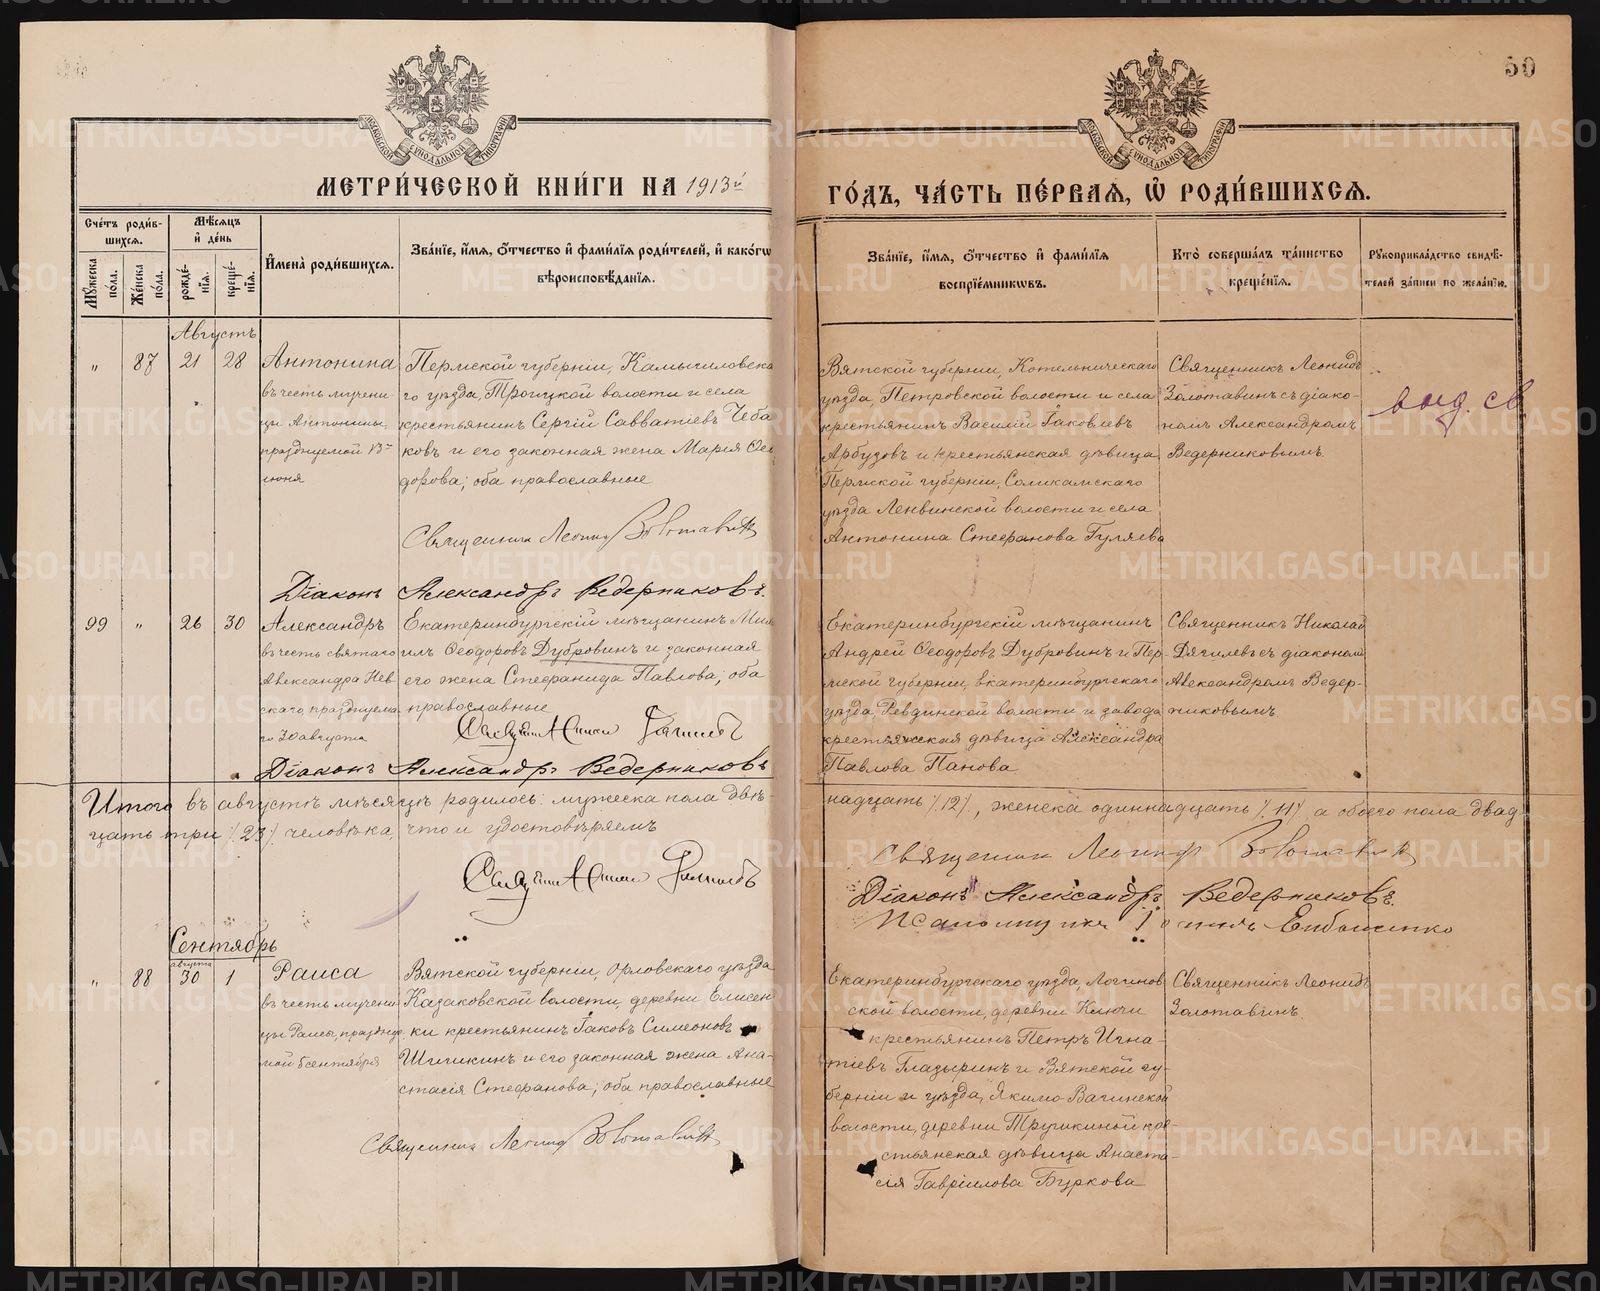 50
МОСКОВСКОЙ СѴНОДАЛЬНОЙ ТИПОГРАФІИ
МОСКОВСКОЙ СѴНОДАЛЬНОЙ ТИПОГРАФІИ
МЕТРИ́ЧЕСКОЙ КНИ́ГИ НА 1913й
ГО́ДЪ, ЧА́СТЬ ПЕ́РВАЯ, Ѡ РОДИ́ВШИХСЯ.
Сче́тъ роди́в-
шихся.
Му́жеска по́ла.
Же́нска по́ла.
Мѣ́сяцъ
и де́нь
рожде́нія.
креще́нія.
Имена̀ роди́вшихся.
Зва́ніе, и́мя, о́тчество и фами́лія роди́телей, и како́гѡ
вѣроисповѣ́данія.
Зва́ніе, и́мя, о́тчество и фами́лія
воспріе́мниковъ.
Кто̀ соверша́лъ та́инство
креще́нія.
Рукоприкла́дство свидѣ́-
телей за́писи по жела́нію.
Августъ
" 87 21 28
Антонина
въ честь мучени
цы Антонины,
празднуемой 13го
іюня
Пермской губерніи, Камышловска
го уѣзда, Троицкой волости и села
крестьянинъ Сергій Савватіевъ Чеба
ковъ и его законная жена Марія Ѳео
дорова; оба православные
Священникъ Леонидъ Золотавинъ
Діаконъ Александръ Ведерниковъ.
Вятской губерніи, Котельническаго
уѣзда, Петровской волости и села
крестьянинъ Василій Іаковлевъ
Арбузовъ и крестьянская дѣвица
Пермской губерніи, Соликамскаго
уѣзда Ленвинской волости и села
Антонина Стефанова Гуляева
Священникъ Леонидъ
Золотавинъ съ діако-
номъ Александромъ
Ведерниковымъ
выд. св
99 " 26 30
Александръ
въ честь святаго
Александра Нев
скаго, празднуема
го 30 августа
Екатеринбургскій мѣщанинъ Миха
илъ Ѳеодоровъ Дубровинъ и законная
его жена Стефанида Павлова; оба
православные
Священникъ Николай Дягилевъ
Діаконъ Александръ Ведерниковъ
Екатеринбургскій мѣщанинъ
Андрей Ѳеодоровъ Дубровинъ и Пер
мской губерніи, Екатеринбургскаго
уѣзда, Ревдинской волости и завода
крестьянская дѣвица Александра
Павлова Панова
Священникъ Николай
Дягилевъ съ діакономъ
Александромъ Ведер-
никовымъ
Итого въ августѣ мѣсяцѣ родилось: мужеска пола двѣ-
надцать /12/, женска одиннадцать /11/ а обоего пола двад-
цать три /23/ человѣка, что и удостовѣряемъ
Священникъ Николай Дягилевъ
Священникъ Леонидъ Золотавинъ
Діаконъ Александръ Ведерниковъ.
Псаломщикъ
Сентябрь
августа
" 88 30 1
Раиса
въ честь мучени
цы Раисы, праздну
мой 5 сентября
Вятской губерніи, Орловскаго уѣзда
Казаковской волости, деревни Елисен
ки крестьянинъ Іаковъ Симеоновъ
Шишкинъ и его законная жена Ана-
стасія Стефанова; оба православные
Священникъ Леонидъ Золотавинъ
Екатеринбургскаго уѣзда, Логинов
ской волости, деревни Ключи
крестьянинъ Петръ Игна-
тіевъ Глазыринъ и Вятской гу-
берніи и уѣзда, Якимо-Вагинской
волости, деревни Трушкиной кре-
стьянская дѣвица Анаста-
сія Гавріилова Буркова
Священникъ Леонидъ
Золотавинъ.
METRIKI.GASO-URAL.RU